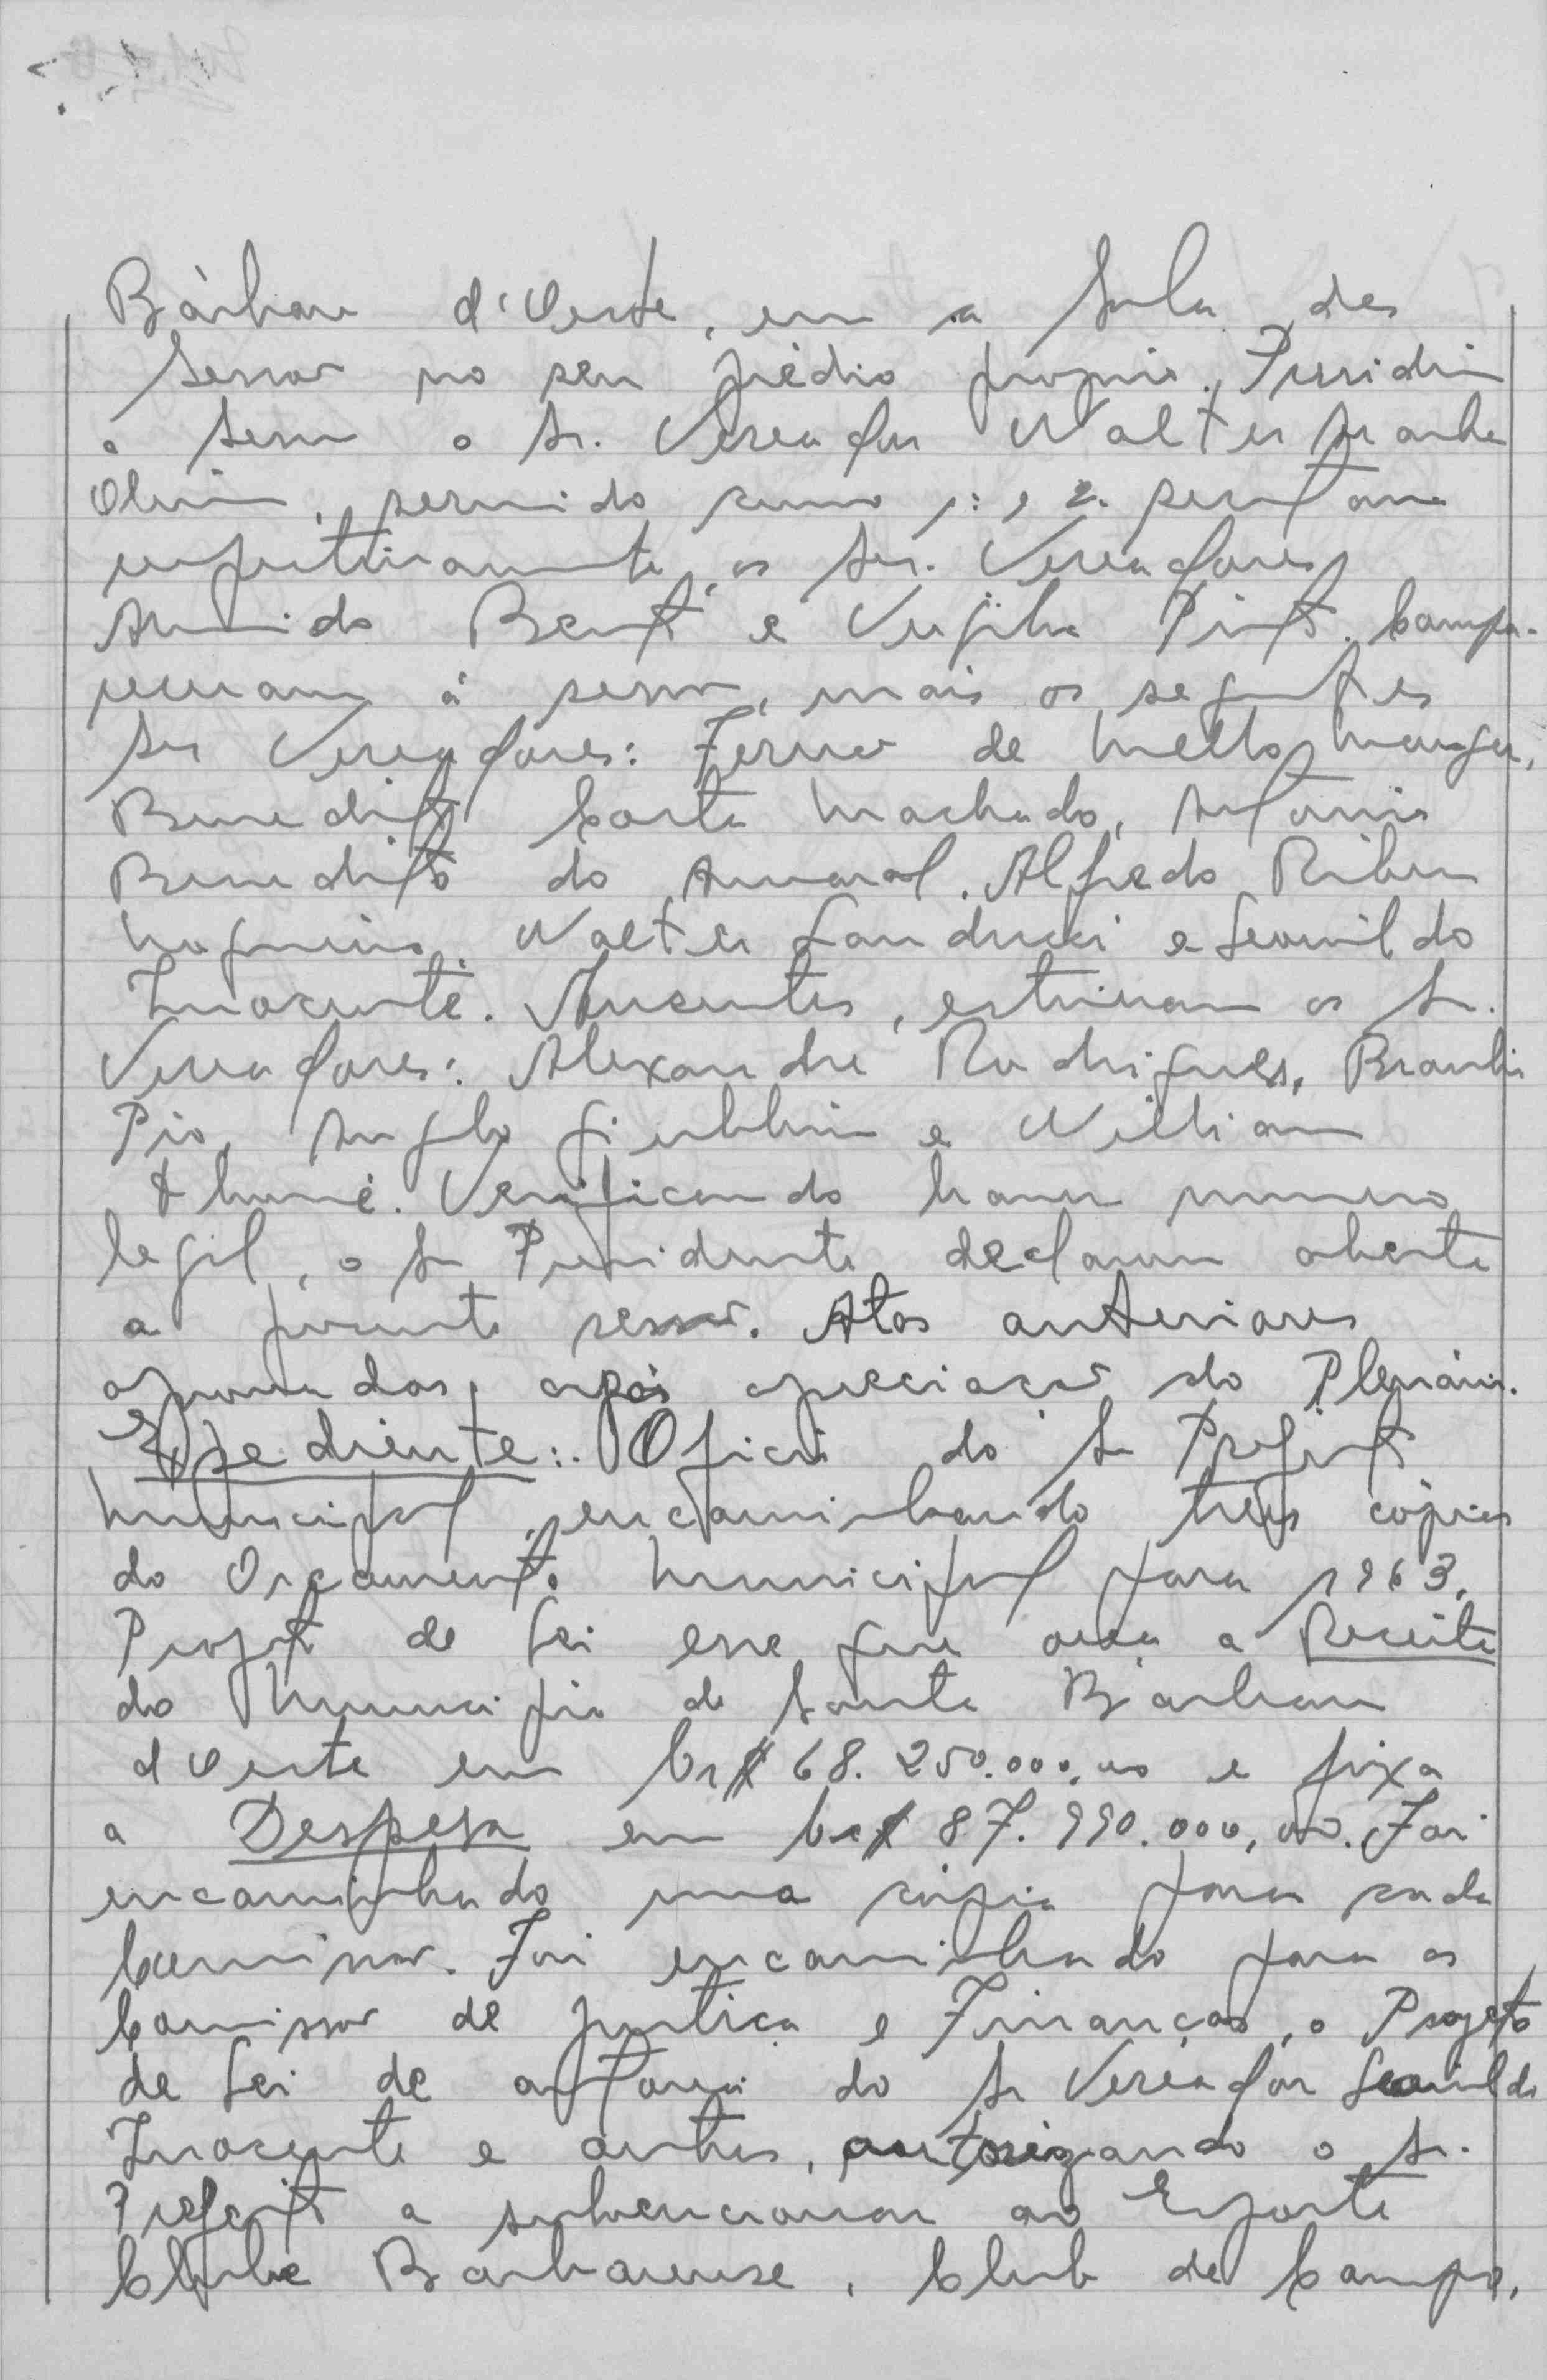 Bárbara d'Oeste, em a Sala das
Sessões no seu prédio proprio. Presidiu
a Sessão o Sr. Vereador Walter
servindo como 1º e 2º
respectivamente, os Srs. Vereadores
Armindo Bento e Virgilio Pinto. Compa-
receram á sessão, mais os seguintes
Srs Vereadores: de Mello
Benedito Costa Machado, Antonio
Benedito do Amaral, Alfredo
Walter Landucci e Leonildo
Inocente. Ausentes, estiveram os Sr.
Vereadores: Alexandre Rodrigues, Braulio
Pio, Angelo Giubbini e Willian
Thomé. Verificando haver numero
legal, o Sr Presidente declarou aberta
a presente sessão. Atas anteriores
aprovadas, após apreciação do Plenário.
Expediente: Oficio do Sr Prefeito
Municipal, encaminhando três cópias
do Orçamento Municipal para 1963.
Projeto de Lei esse que orça a Receita
do Municipio de Santa Bárbara
d'Oeste em Cr$ 68.250.000,00 e fixa
a Despesa em Cr$ 87.990.000,00. Foi
encaminhado uma cópia para cada
Comissão. Foi encaminhado para as
Comissão de Justiça e Finanças, o Projeto
de Lei de autoria do Sr Vereador Leonildo
Inocente e outros, autorizando o Sr.
Prefeito a subvencionar ao Esporte
Clube Barbarense, Club de Campo,